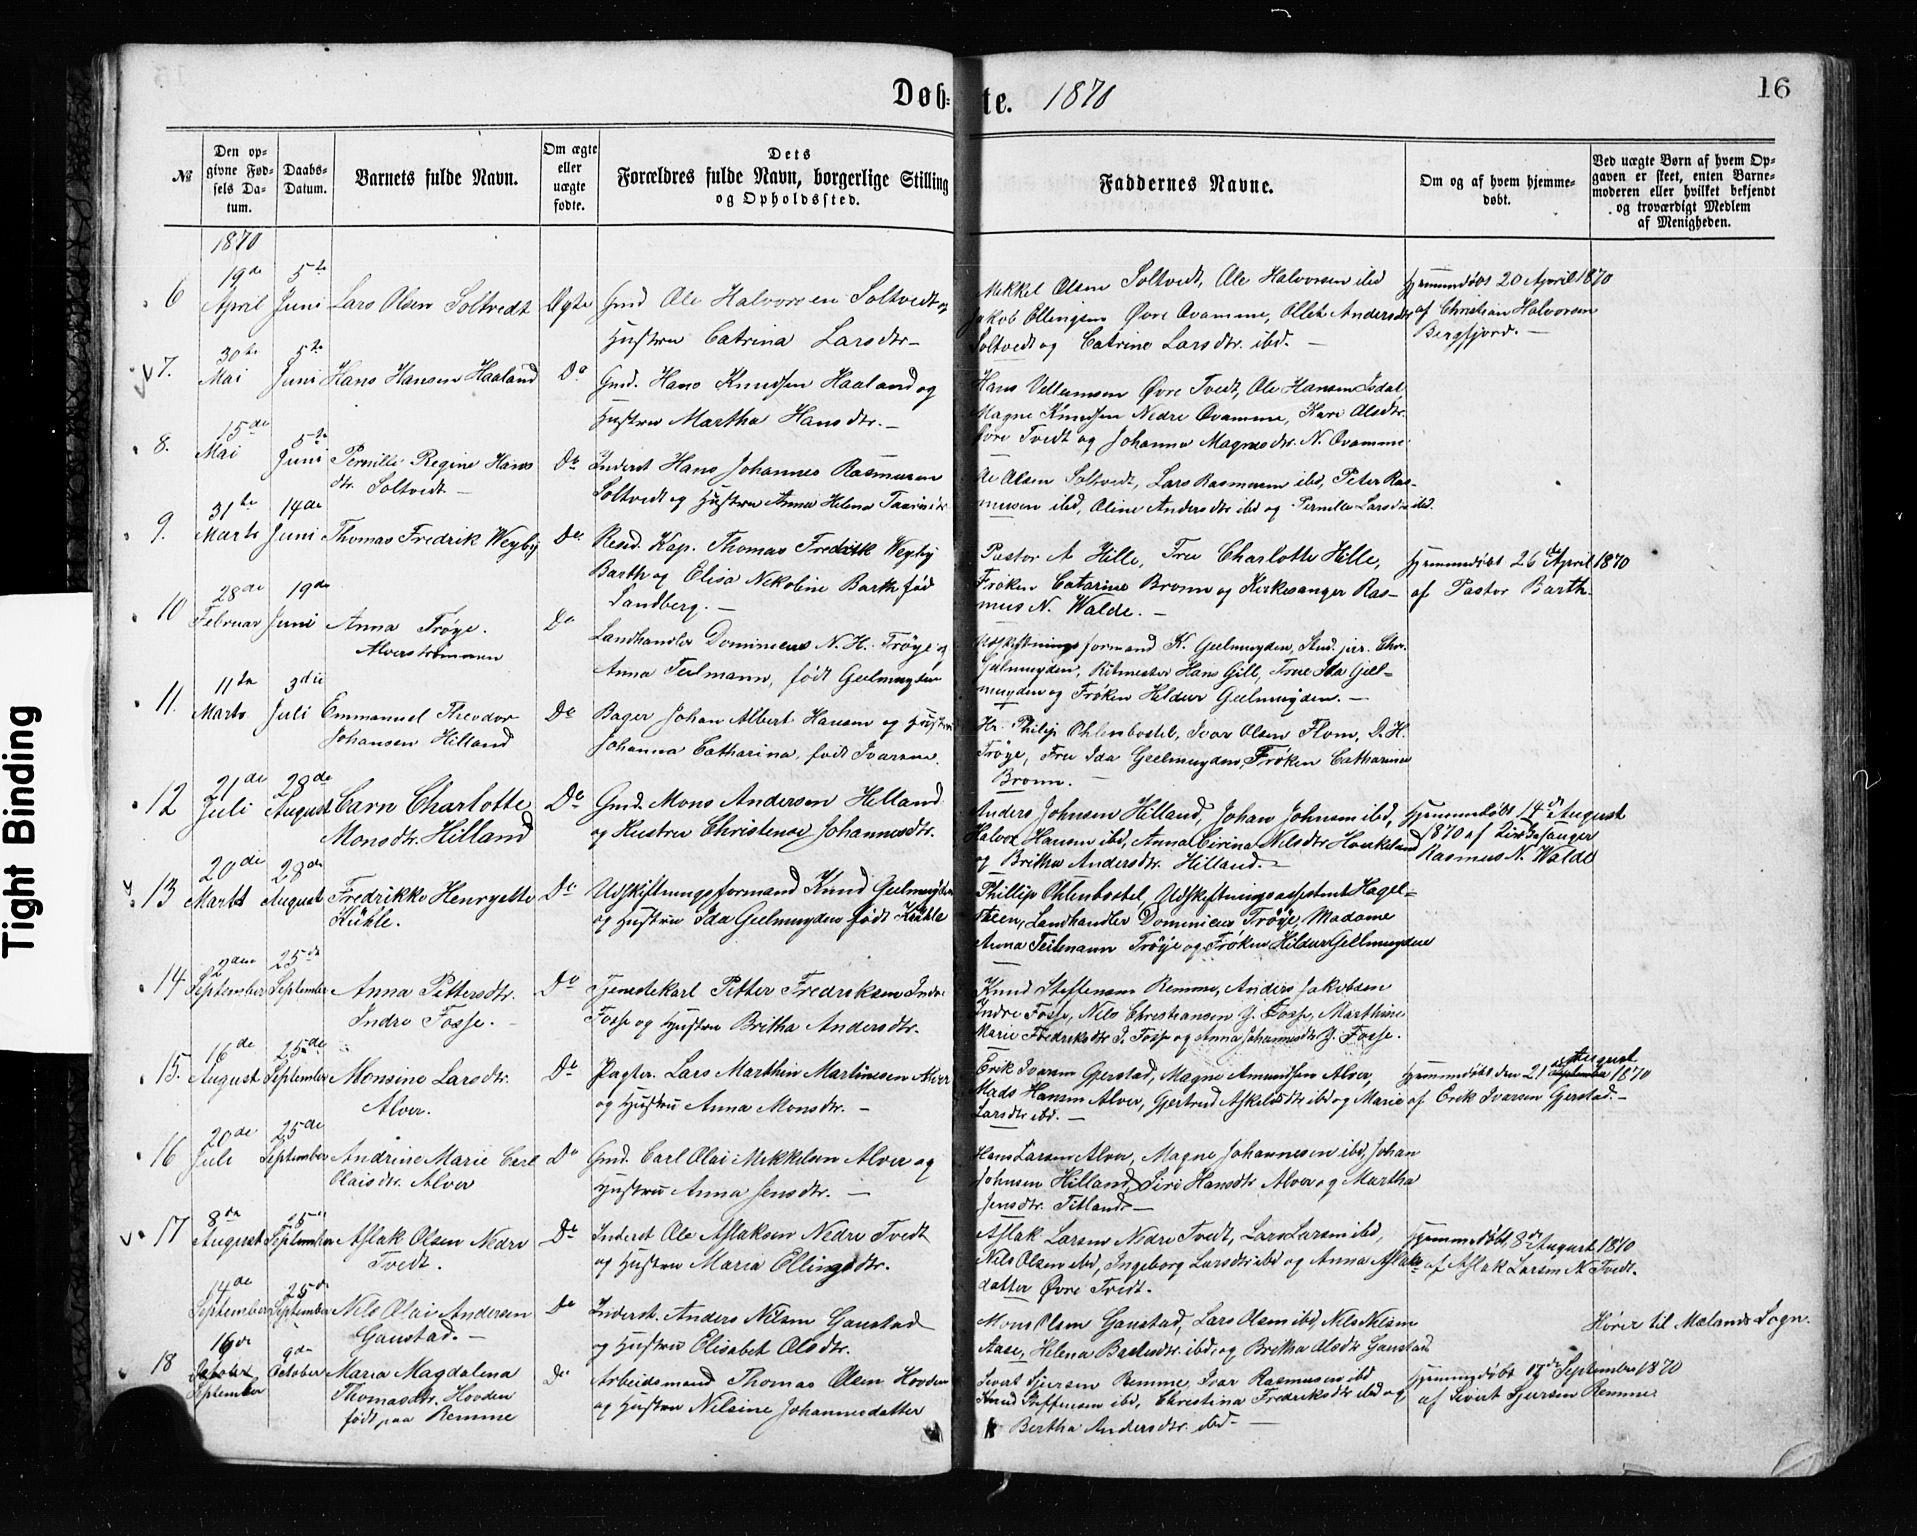 Døb=
te. 1870
16
№
Den op=
givne Fød=
sels Da=
tum.
Daabs=
Datum.
Barnets fulde Navn.
Om ægte
eller
uægte
fødte.
Dets
Forældres fulde Navn, borgerlige Stilling
og Opholdssted.
Faddernes Navne.
Om og af hvem hjemme=
døbt.
Ved uægte Børn af hvem Op=
gaven er skeet, enten Barne=
moderen eller hvilket bekjendt
og troværdigt Medlem
af Menigheden.
1870
6
19de
April
5te
Juni
Lars Olsen Soltvedt
Ægte
Gmd Ole Halvorsen Soltvedt og
Hustru Catrina Larsdtr. –
Mikkel Olsen Soltvedt, Ole Halvorsen ibd
Jakob Ellingsen Øvre Qvamme, Anders
Soltvedt og Catrine Larsdtr. ibd. –
Hjemmedøbt 20 April 1870
af Christian Halvorsen
Bergfjord. –
7.
30te
Mai
5te
Juni
Hans Hansen Haaland
Do
Gmd. Hans Knudsen Haaland og
Hustru Martha Hansdtr. –
Hans Øvre Tvedt, Ole Hansen Isdal,
Magne Knudsen Nedre Qvamme, Kari Olsdtr.
Øvre Tvedt og Johanna Magnesdtr. N. Qvamme
8.
15de
Mai
5te
Juni
Pernille Regine Hans
dtr. Soltvedt –
Do
Inderst Hans Johannes Rasmussen
Soltvedt og Hustru Anna Helena
Ole Olsen Soltvedt, Lars Rasmussen ibd, Peter Ras-
mussen ibd, Oline Andersdtr ibd og Pernille Larsdtr ibd.
9.
31te
Marts
14de
Juni
Thomas Fredrik Weyby
Do
Resd. Kap. Thomas Fredrik Weyby
Barth og Elisa Nikoline Barth fød
Sandberg. –
Pastor A Hille, Frue Charlotte Hille,
Frøken Catarine Bronn og Kirkesanger Ras-
mus N. Walde. –
Hjemmedøbt 26de April 1870
af Pastor Barth.
10
28de
Februar
19de
Juni
Anna Trøye.
Alverstrømmen
Do
Landhandler Dominicus N. H. Trøye og
Anna Teilmann, født Geelmuyden
Udskiftningsformand K. Geelmuyden, Stud. jur. Chr.
Geelmuyden, Ritmester Hans Gill, Frue Ida Geel-
muyden og Frøken Hildur Geelmuyden. –
11.
11te
Marts
3die
Juli
Emmanuel Theodor
Johansen Hilland
Do
Bager Johan Albert Hansen og Hustru
Johanna Catharina, født Ivarsen.
Hr. Philip Ohlenbostel, Ivar Olsen Flom, D. H.
Trøye, Frue Ida Geelmuyden, Frøken Catharina
Bronn. –
12
21de
Juli
28de
August
Carn Charlotte
Monsdtr. Hilland
Do
Gmd. Mons Andersen Hilland
og Hustru Christense Johannesdtr.
Anders Johnsen Hilland, Johan Johnsen ibd,
Halvor Hansen ibd, Anna Cirina Nilsdtr Haukeland
og Britha Andersdtr. Hilland. –
Hjemmedøbt 14de August
1870 af Kirkesanger
Rasmus N. Walde
13
20de
Marts
28de
August
Fredrikke Henryette
Kühle.
Do
Udskiftningsformand Knud Geelmuyden
og Hustru Ida Geelmuyden født Kühle
Phillip Ohlenbostel, Udskiftningsassistent Hagel-
steen, Landhandler Dominicus Trøye, Madame
Anna Teilmann Trøye og Frøken Hildur Geelmuyden
14
2den
September
25de
September
Anna Pettersdtr.
Indre Fosse. –
Do
Tjenestekarl Petter Fredriksen Indre
Fosse og Hustru Britha Andersdtr.
Knud Steffensen Remme, Anders Jakobsen
Indre Fosse, Nils Christiansen I. Fosse, Marthine
Marie Fredriksdtr I. Fosse og Anna Johannesdtr I. Fosse.
15.
16de
August
25de
September
Monsine Larsdtr.
Alver.
Do
Pagter. Lars Marthin Martinesen Alver
og Hustru Anna Monsdtr. –
Erik Ivarsen Gjerstad, Magne Amundsen Alver,
Mads Hansen Alver, Gjertrud Askelsdtr ibd og Marie
Larsdtr ibd. –
August
Hjemmedøbt den 21de September 1870
af Erik Ivarsen Gjerstad. –
16
20de
Juli
25de
September
Andrine Marie Carl
Olaisdtr. Alver
Do
Gmd. Carl Olai Mikkelsen Alver og
Hustru Anna Jensdtr. –
Hans Larsen Alver, Magne Johannesen ibd, Johan
Johnsen Hilland, Siri Hansdtr Alver og Martha
Jensdtr. Titland –
17
8de
August
25de
September
Aslak Olsen Nedre
Tvedt.
Do
Inderst Ole Aslaksen Nedre Tvedt
og Hustru Maria Ellingsdtr.
Aslak Larsen Nedre Tvedt, Lars Larsen ibd,
Nils Olsen ibd, Ingeborg Larsdtr ibd og Anna Aslaks-
datter Øvre Tvedt.
Hjemmedøbt, 8de August 1870
af Aslak Larsen N. Tvedt.
14de
September
25de
September
Nils Olai Andersen
Ganstad. –
Do
Inderst. Anders Nilsen Ganstad
og Hustru Elisabet Olsdtr.
Mons Olsen Ganstad, Lars Olsen ibd, Nils Nilsen
Aase, Helena ibd, og Britha Olsdtr Ganstad
Hører til Mælands Sogn.
18
16de
October
September
9de
October
Maria Magdalena
Thomasdtr. Hovden
født paa Remme
Do
Arbeidsmand Thomas Olsen Hovden
og Hustru Nilsine Johannesdatter
Sivert Sjursen Remme Ivar Rasmussen ibd
Knud Steffensen ibd, Christina Fredriksdtr ibd og
Bertha Andersdtr. ibd. –
Hjemmedøbt 17de September 1870
af Sivert Sjursen Remme
Tight Binding